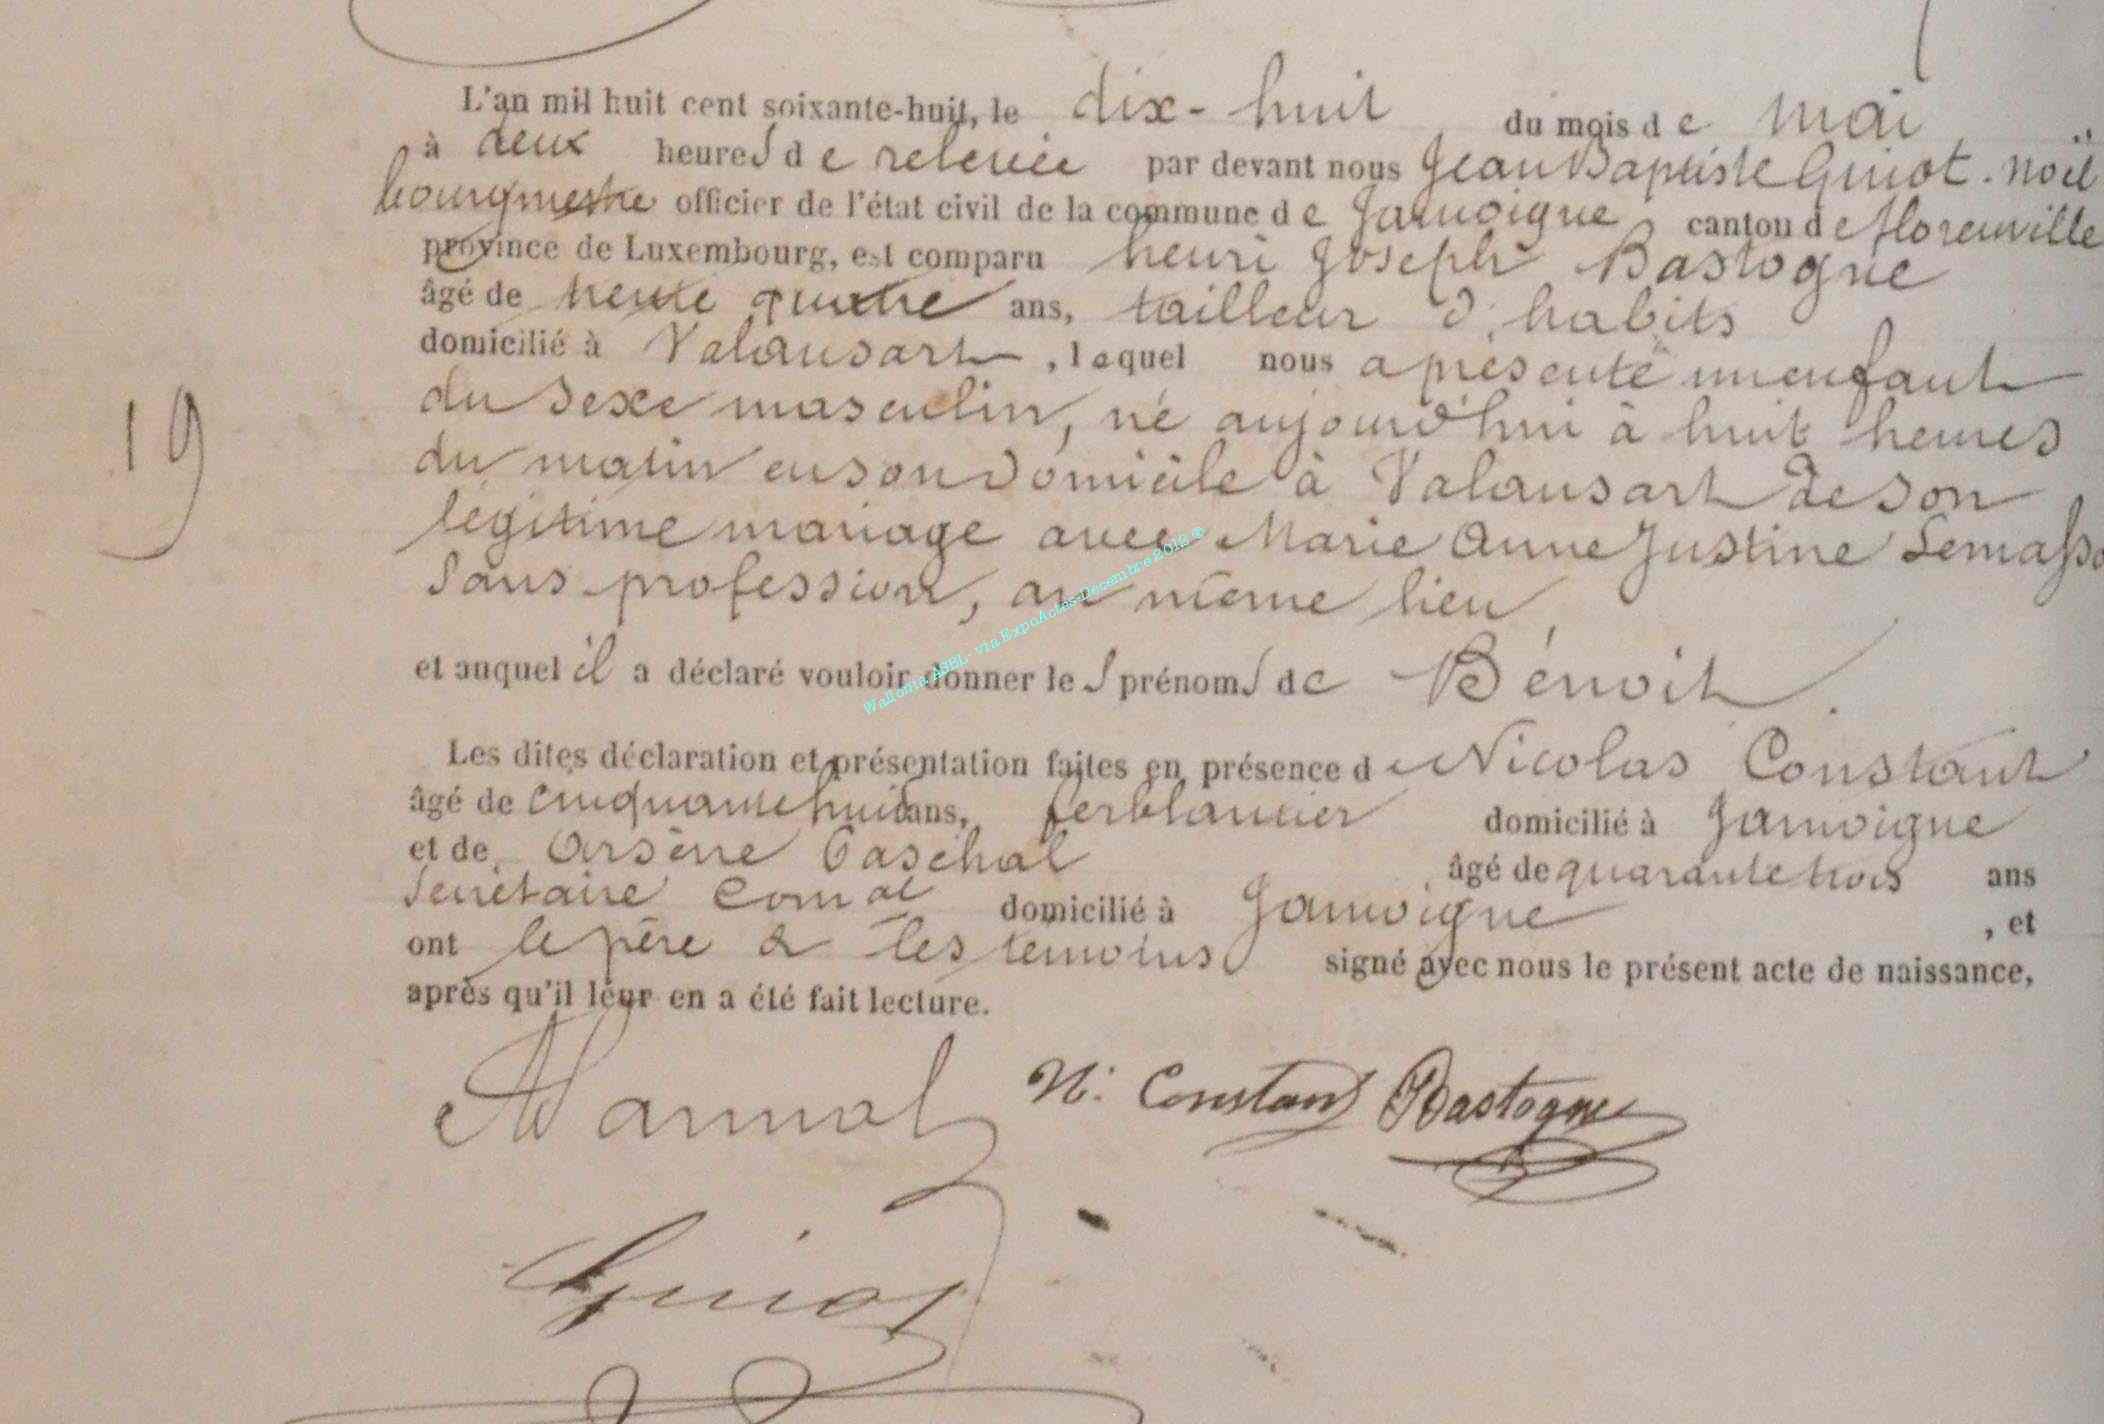 L'an mil huit cent soixante-huit, le dix-huit du mois de mai
à deux heures de relevée par devant nous Jean Baptiste Guiot-Noël
bourgmestre officier de l'état civil de la commune de Jamoigne canton de florenville
province de Luxembourg, est comparu henri Joseph Bastogne
âgé de trente quatre ans, tailleur d'habits
domicilié à Valansart, lequel nous a présenté un enfant
du sexe masculin, né aujourd'hui à huit heures
19
du matin en son domicile à Valansart de son
légitime mariage avec Marie Anne Justine Lemasso
sans profession, au même lieu,
et auquel il a déclaré vouloir donner les prénoms de Bénoit.
Les dites déclaration et présentation faites en présence de Nicolas Constant
âgé de cinquante huit ans, ferblantier domicilié à Jamoigne
et de Arsène Paschal âgé de quarante trois ans
Secrétaire Comal domicilié à Jamoigne, et
ont le père & les témoins signé avec nous le présent acte de naissance,
après qu'il leur en a été fait lecture.
N. Constant Bastogne
Guiot
Wallonia ASBL- via ExpoActes-Decembre 2016 ®